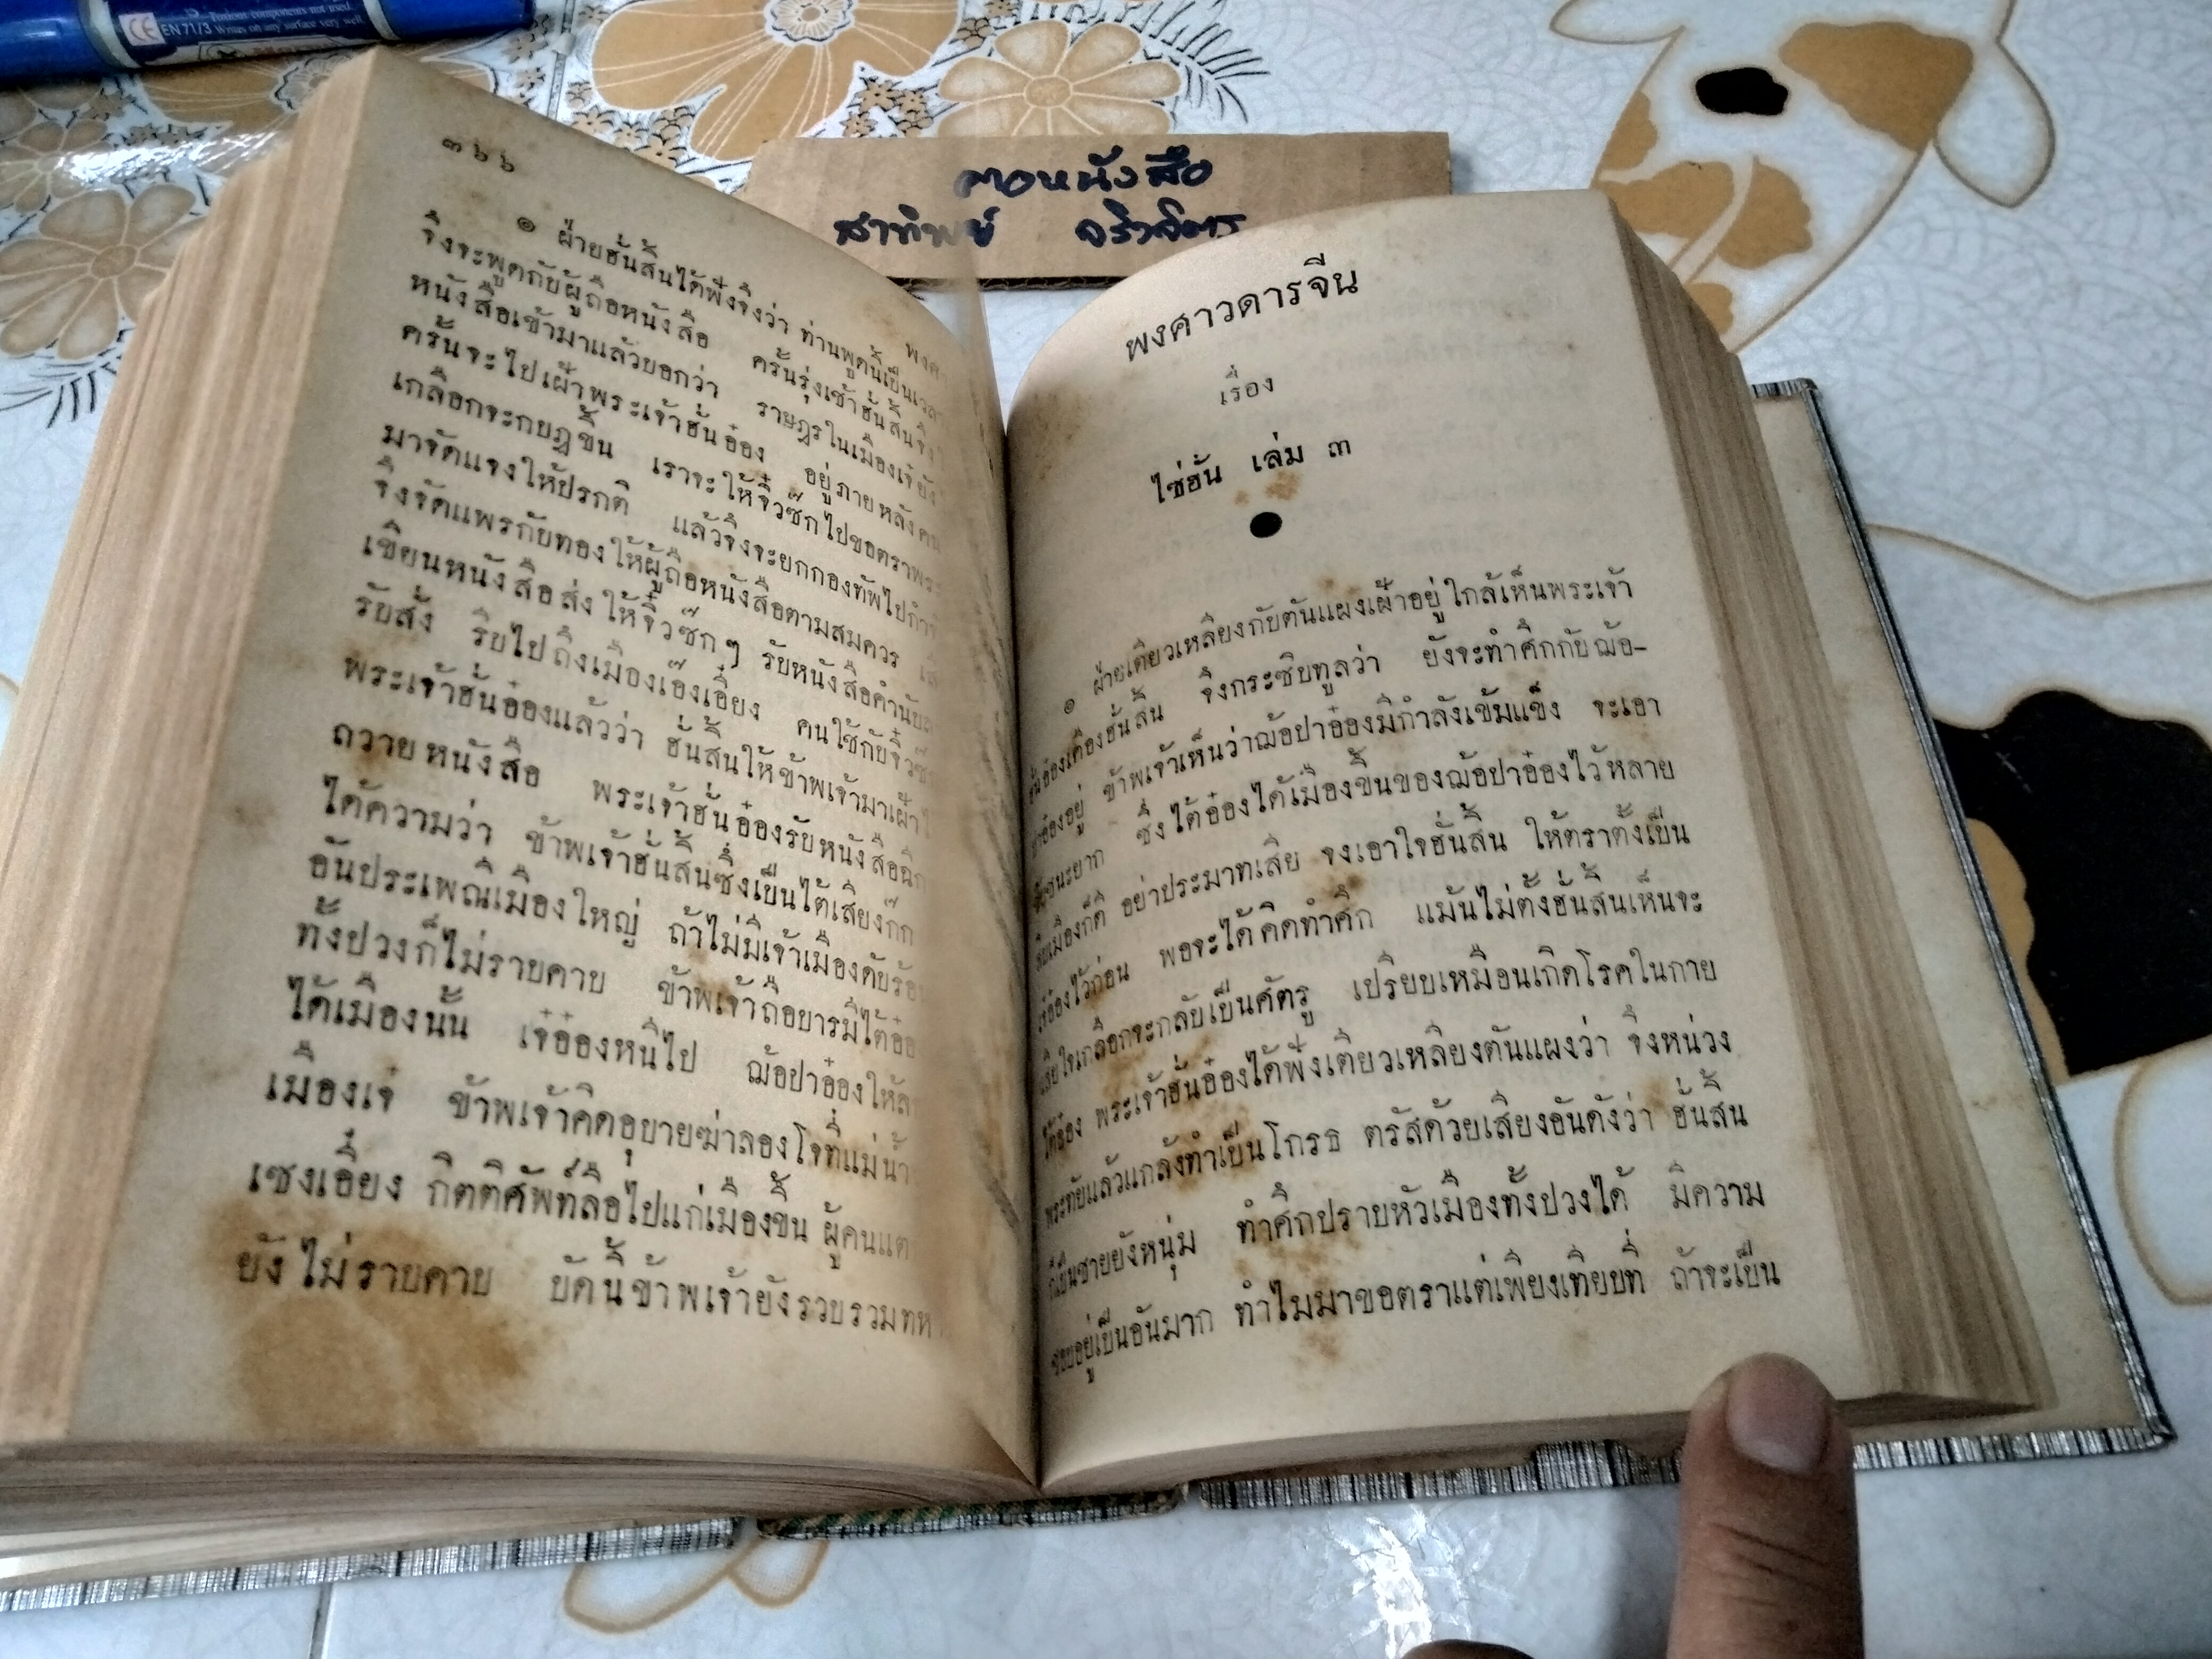 Toxious components not used.
CE EN 71/3 Writes on any surface very well.
คอหนังสือ
สาทิพย์
๓๖๖
พงศา
๏ ฝ่ายฮั่นสิ้นได้ฟังจึงว่า ท่านพูดนี้เป็นเวลา
จึงจะพูดกับผู้ถือหนังสือ ครั้นรุ่งเช้าฮั่นสิ้นจึง
หนังสือเข้ามาแล้วบอกว่า ราษฎรในเมืองเจ๋ยัง
ครั้นจะไปเฝ้าพระเจ้าฮั่นอ๋อง อยู่ภายหลังคน
เกลือกจะกบฏขึ้น เราจะให้จิ๋วซ๊กไปขอตราพระ
มาจัดแจงให้ปรกติ แล้วจึงจะยกกองทัพไป
จึงจัดแพรกับทองให้ผู้ถือหนังสือตามสมควร
เขียนหนังสือส่งให้จิ๋วซ๊กๆ รับหนังสือคำนับ
รับสั่ง รีบไปถึงเมืองเอ๊งเอี๋ยง คนใช้กับจิ๋วซ๊
พระเจ้าฮั่นอ๋องแล้วว่า ฮั่นสิ้นให้ข้าพเจ้ามาเฝ้า
ถวายหนังสือ พระเจ้าฮั่นอ๋องรับหนังสือฉีก
ได้ความว่า ข้าพเจ้าฮั่นสิ้นซึ่งเป็นไต้เสียงก๊ก
อันประเพณีเมืองใหญ่ ถ้าไม่มีเจ้าเมืองดับร้อน
ทั้งปวงก็ไม่ราบคาบ ข้าพเจ้าถือบารมีไต้อ๋อ
ได้เมืองนั้น เจ๋อ๋องหนีไป ฌ้อปาอ๋องให้ล
เมืองเจ๋ ข้าพเจ้าคิดอุบายฆ่าลองโจที่แม่น้ำ
เซงเอี๋ยง กิตติศัพท์ลือไปแก่เมืองขึ้น ผู้คนแต
ยังไม่ราบคาบ บัดนี้ข้าพเจ้ายังรวบรวมทห
พงศาวดารจีน
เรื่อง
ไซ่ฮั่น เล่ม ๓
๏ ฝ่ายเตียวเหลียงกับตันแผงเฝ้าอยู่ใกล้เห็นพระเจ้า
ฮั่นอ๋องเคืองฮั่นสิ้น จึงกระซิบทูลว่า ยังจะทำศึกกับฌ้อ-
ปาอ๋องอยู่ ข้าพเจ้าเห็นว่าฌ้อปาอ๋องมีกำลังเข้มแข็ง จะเอา
ชัยชนะยาก ซึ่งไต้อ๋องได้เมืองขึ้นของฌ้อปาอ๋องไว้หลาย
สิบเมืองก็ดี อย่าประมาทเสีย จงเอาใจฮั่นสิ้น ให้ตราตั้งเป็น
เจ๋อ๋องไว้ก่อน พอจะได้คิดทำศึก แม้นไม่ตั้งฮั่นสิ้นเห็นจะ
เสียใจเกลือกจะกลับเป็นศัตรู เปรียบเหมือนเกิดโรคในกาย
ไต้อ๋อง พระเจ้าฮั่นอ๋องได้ฟังเตียวเหลียงตันแผงว่า จึงหน่วง
พระทัยแล้วแกล้งทำเป็นโกรธ ตรัสด้วยเสียงอันดังว่า ฮั่นสิ้น
ก็เป็นชายยังหนุ่ม ทำศึกปราบหัวเมืองทั้งปวงได้ มีความ
ชอบอยู่เป็นอันมาก ทำไมมาขอตราแต่เพียงเทียบที่ ถ้าจะเป็น